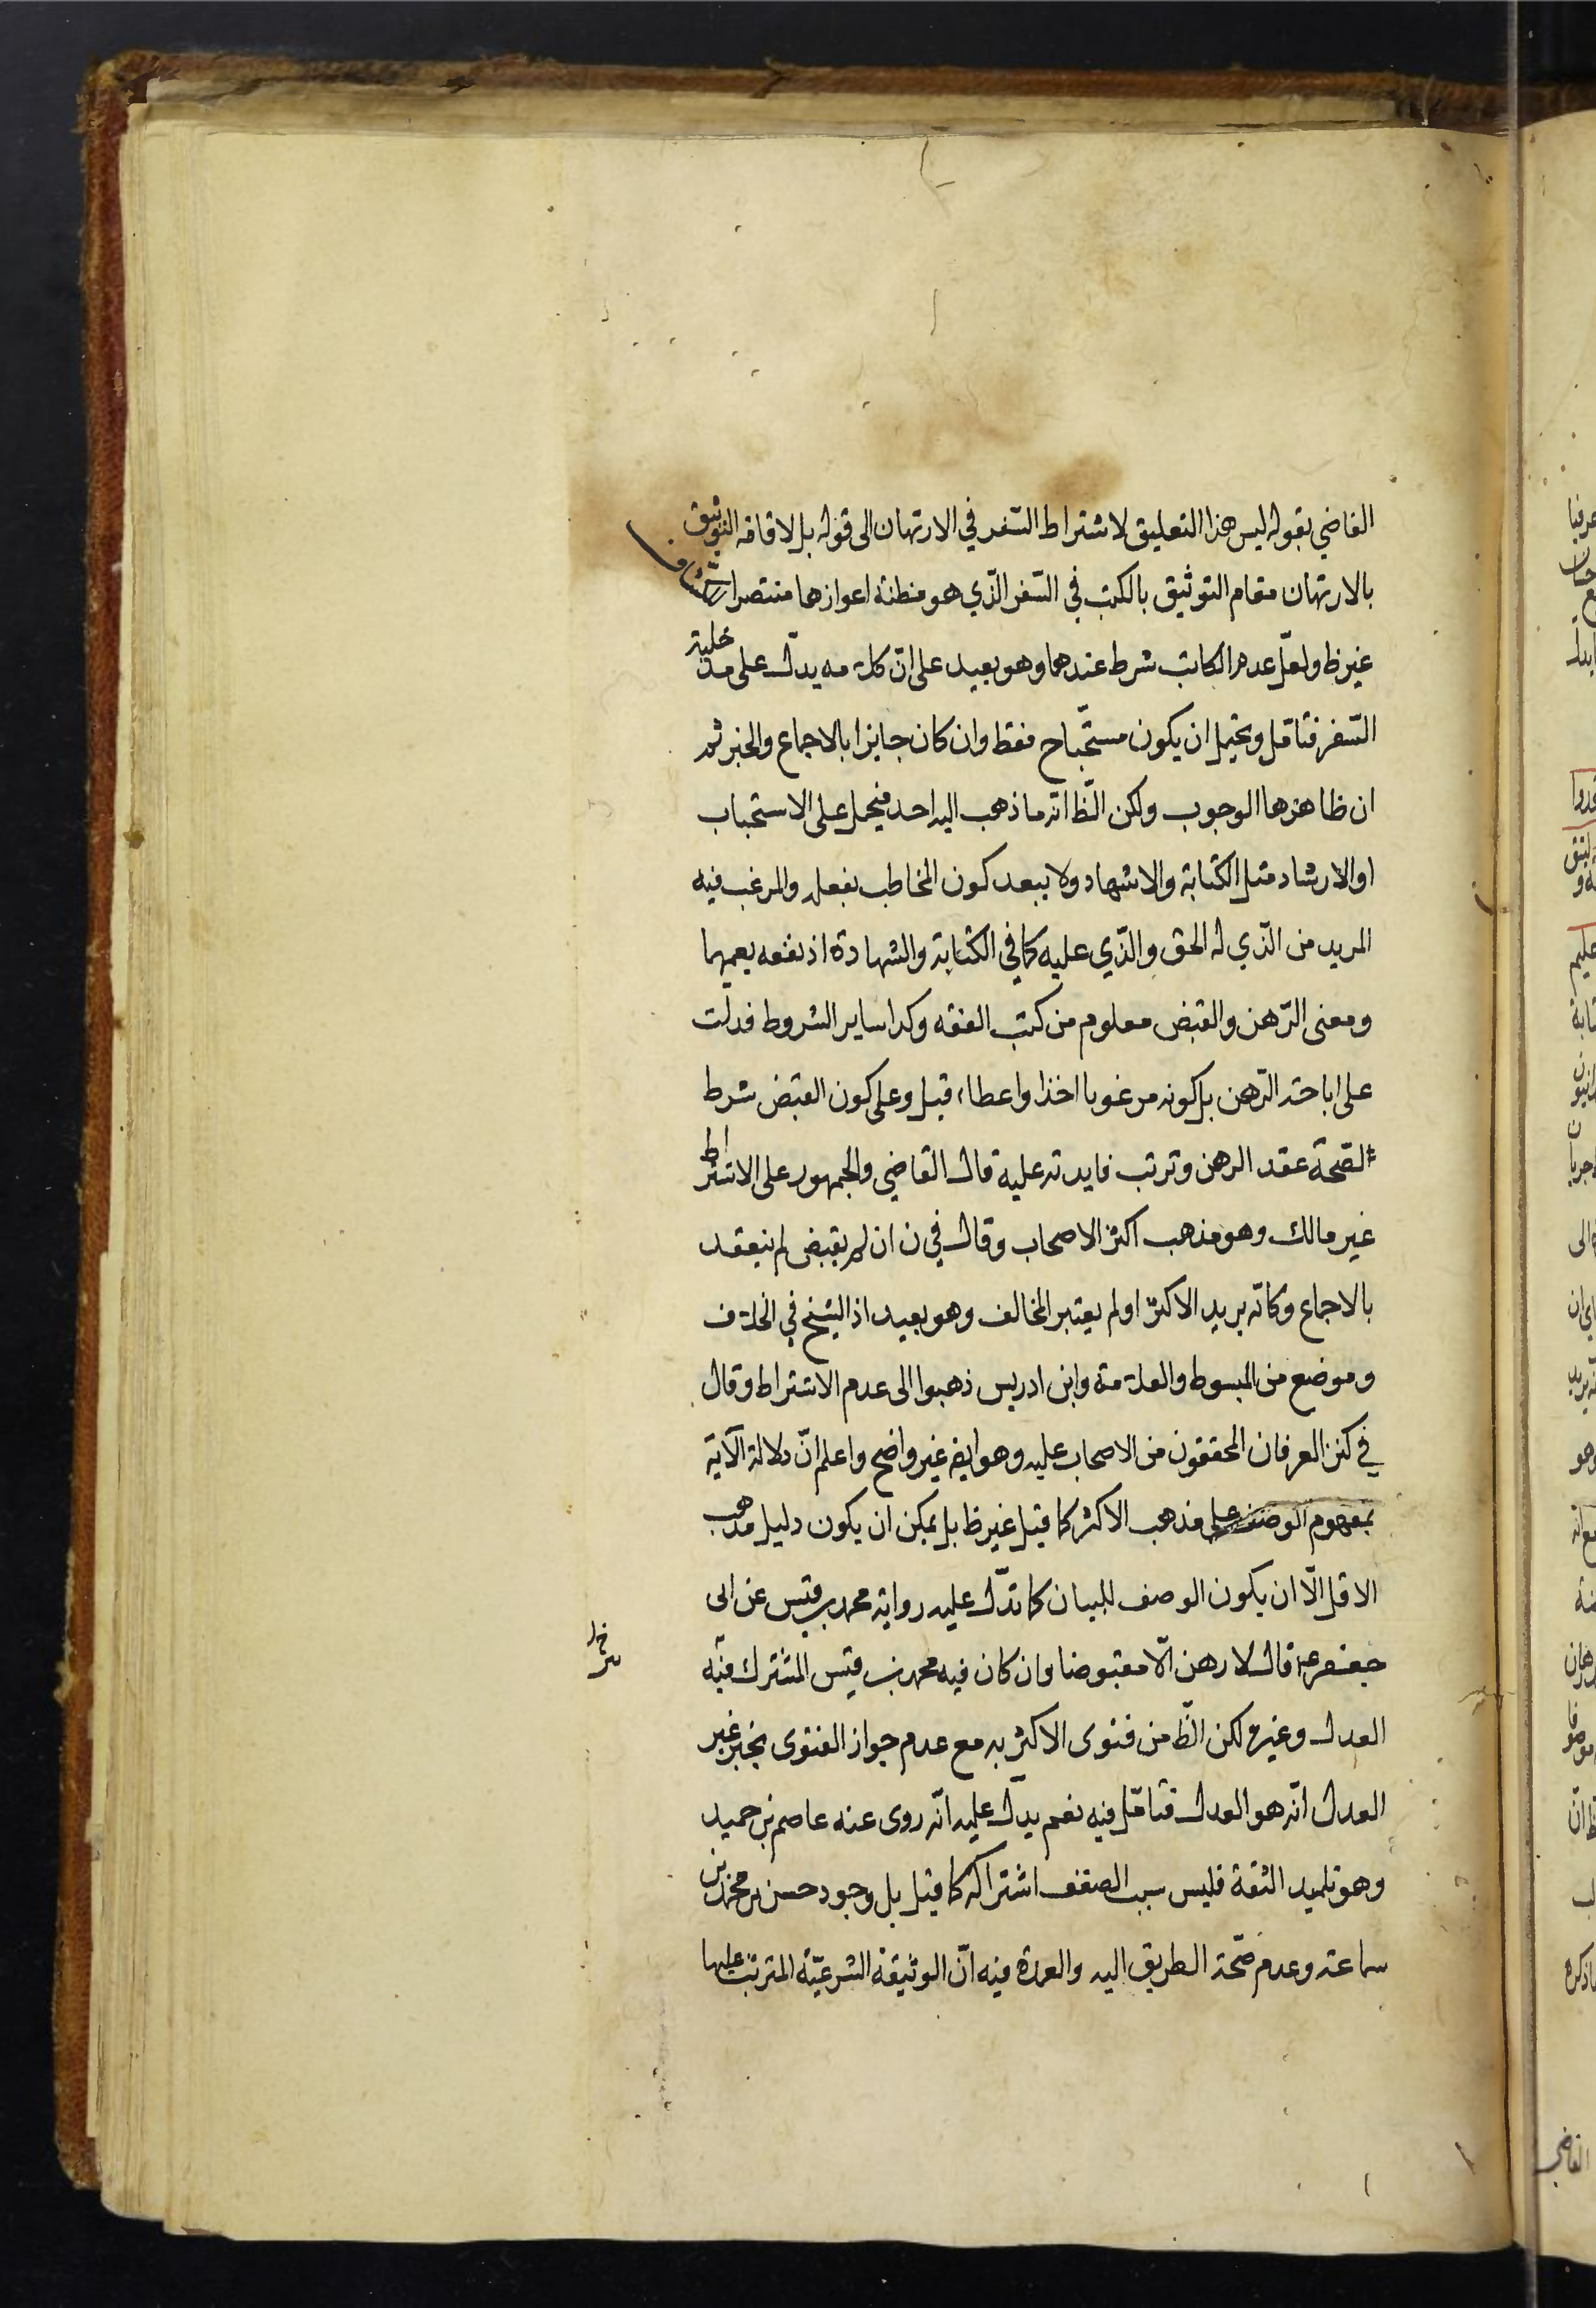 القاضي بقوله ليس هذا التعليق لاشتراط السّفر في الارتهان الى قوله بل لاقامه التوثيق
بالارتهان مقام التوثيق بالكتب في السّفر الّذي هو مظنة اعوازها مختصرا
غير ظ ولعلّ عدم الكاتب شرط عندهما وهو بعيد على انّ كلامه يدلّ على مدخلية
السّفر فتامّل ويحتمل ان يكون مستحبّا ح فقط وان كان جايزا بالاجماع والخبر ثم
ان ظاهرها الوجوب ولكن الظّ انّه ما ذهب اليه احد فيحمل على الاستحباب
او الارشاد مثل الكتابة والاشهاد ولا يبعد كون المخاطب بفعله والمرغب فيه
المريد من الّذي له الحق والّذي عليه كما في الكتابة والشهادة اذ نفعه يعمهما
ومعنى الرّهن والقبض معلوم من كتب الفقه وكذا ساير الشروط فدلت
على اباحة الرّهن بل كونه مرغوبا اخذا واعطاء قيل وعلى كون القبض شرط
الصّحة عقد الرهن وترتب فايدته عليه قال القاضي والجمهور على الاشتراط
غير مالك وهو مذهب اكثر الاصحاب وقال في ن ان لم يقبض لم ينعقد
بالاجماع وكانّه يريد الاكثر او لم يعتبر المخالف وهو بعيد اذ الشيخ في الخلاف
وموضع من المبسوط والعلامة وابن ادريس ذهبوا الى عدم الاشتراط وقال
في كنز العرفان المحققون من الاصحاب عليه وهو ايض غير واضح واعلم انّ دلالة الآية
بمفهوم الوصف على مذهب الاكثر كما قيل غير ظ بل يمكن ان يكون دليل مذهب
الاقل الّا ان يكون الوصف للبيان كما تدّل عليه رواية محمد بن قيس عن ابى
جعفر ع قال لا رهن الّا مقبوضا وان كان فيه محمد بن قيس المشترك فيّه
العدل وغيره لكن الظّ من فتوى الاكثر به مع عدم جواز الفتوى بخبر غير
العدل انّه هو العدل فتامّل فيه نعم يدّل عليه انّه روى عنه عاصم بن حميد
وهو تلميد الثقة فليس سبب الضعف اشتراكه كما قيل بل وجود حسن بن محمد بن
سماعة وعدم صّحة الطريق اليه والعمدة فيه انّ الوثيقة الشرعيّة المترتب عليها